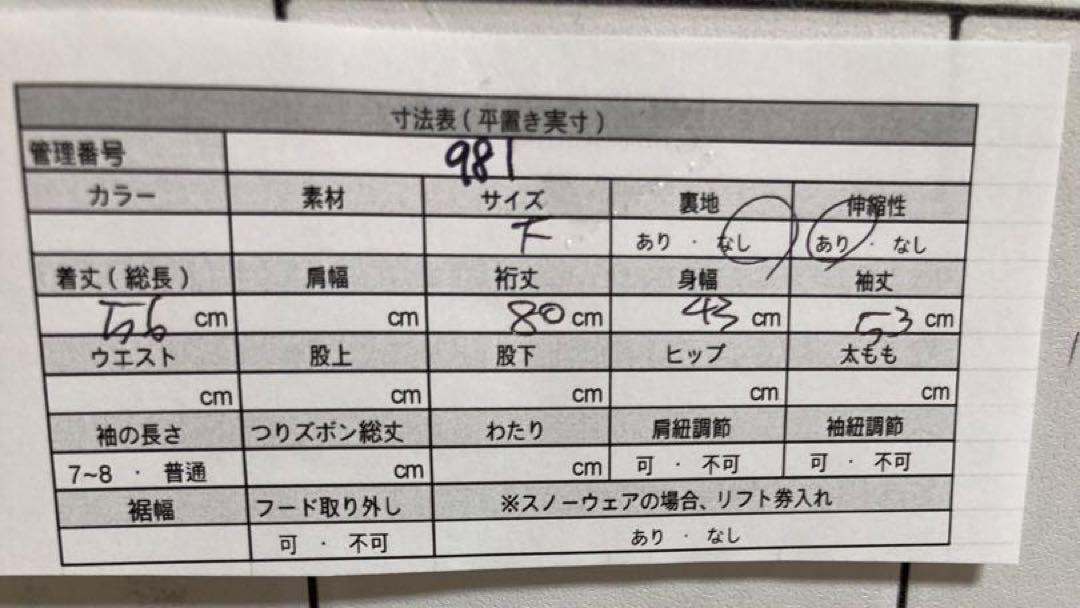 寸法表(平置き実寸)
管理番号 981
カラー 素材 サイズ 裏地 伸縮性
F あり ・ なし あり ・ なし
着丈(総長) 肩幅 裄丈 身幅 袖丈
56 cm cm 80 cm 43 cm 53 cm
ウエスト 股上 股下 ヒップ 太もも
cm cm cm cm cm
袖の長さ つりズボン総丈 わたり 肩紐調節 袖紐調節
7~8 ・ 普通 cm cm 可 ・ 不可 可 ・ 不可
裾幅 フード取り外し ※スノーウェアの場合、リフト券入れ
可 ・ 不可 あり ・ なし